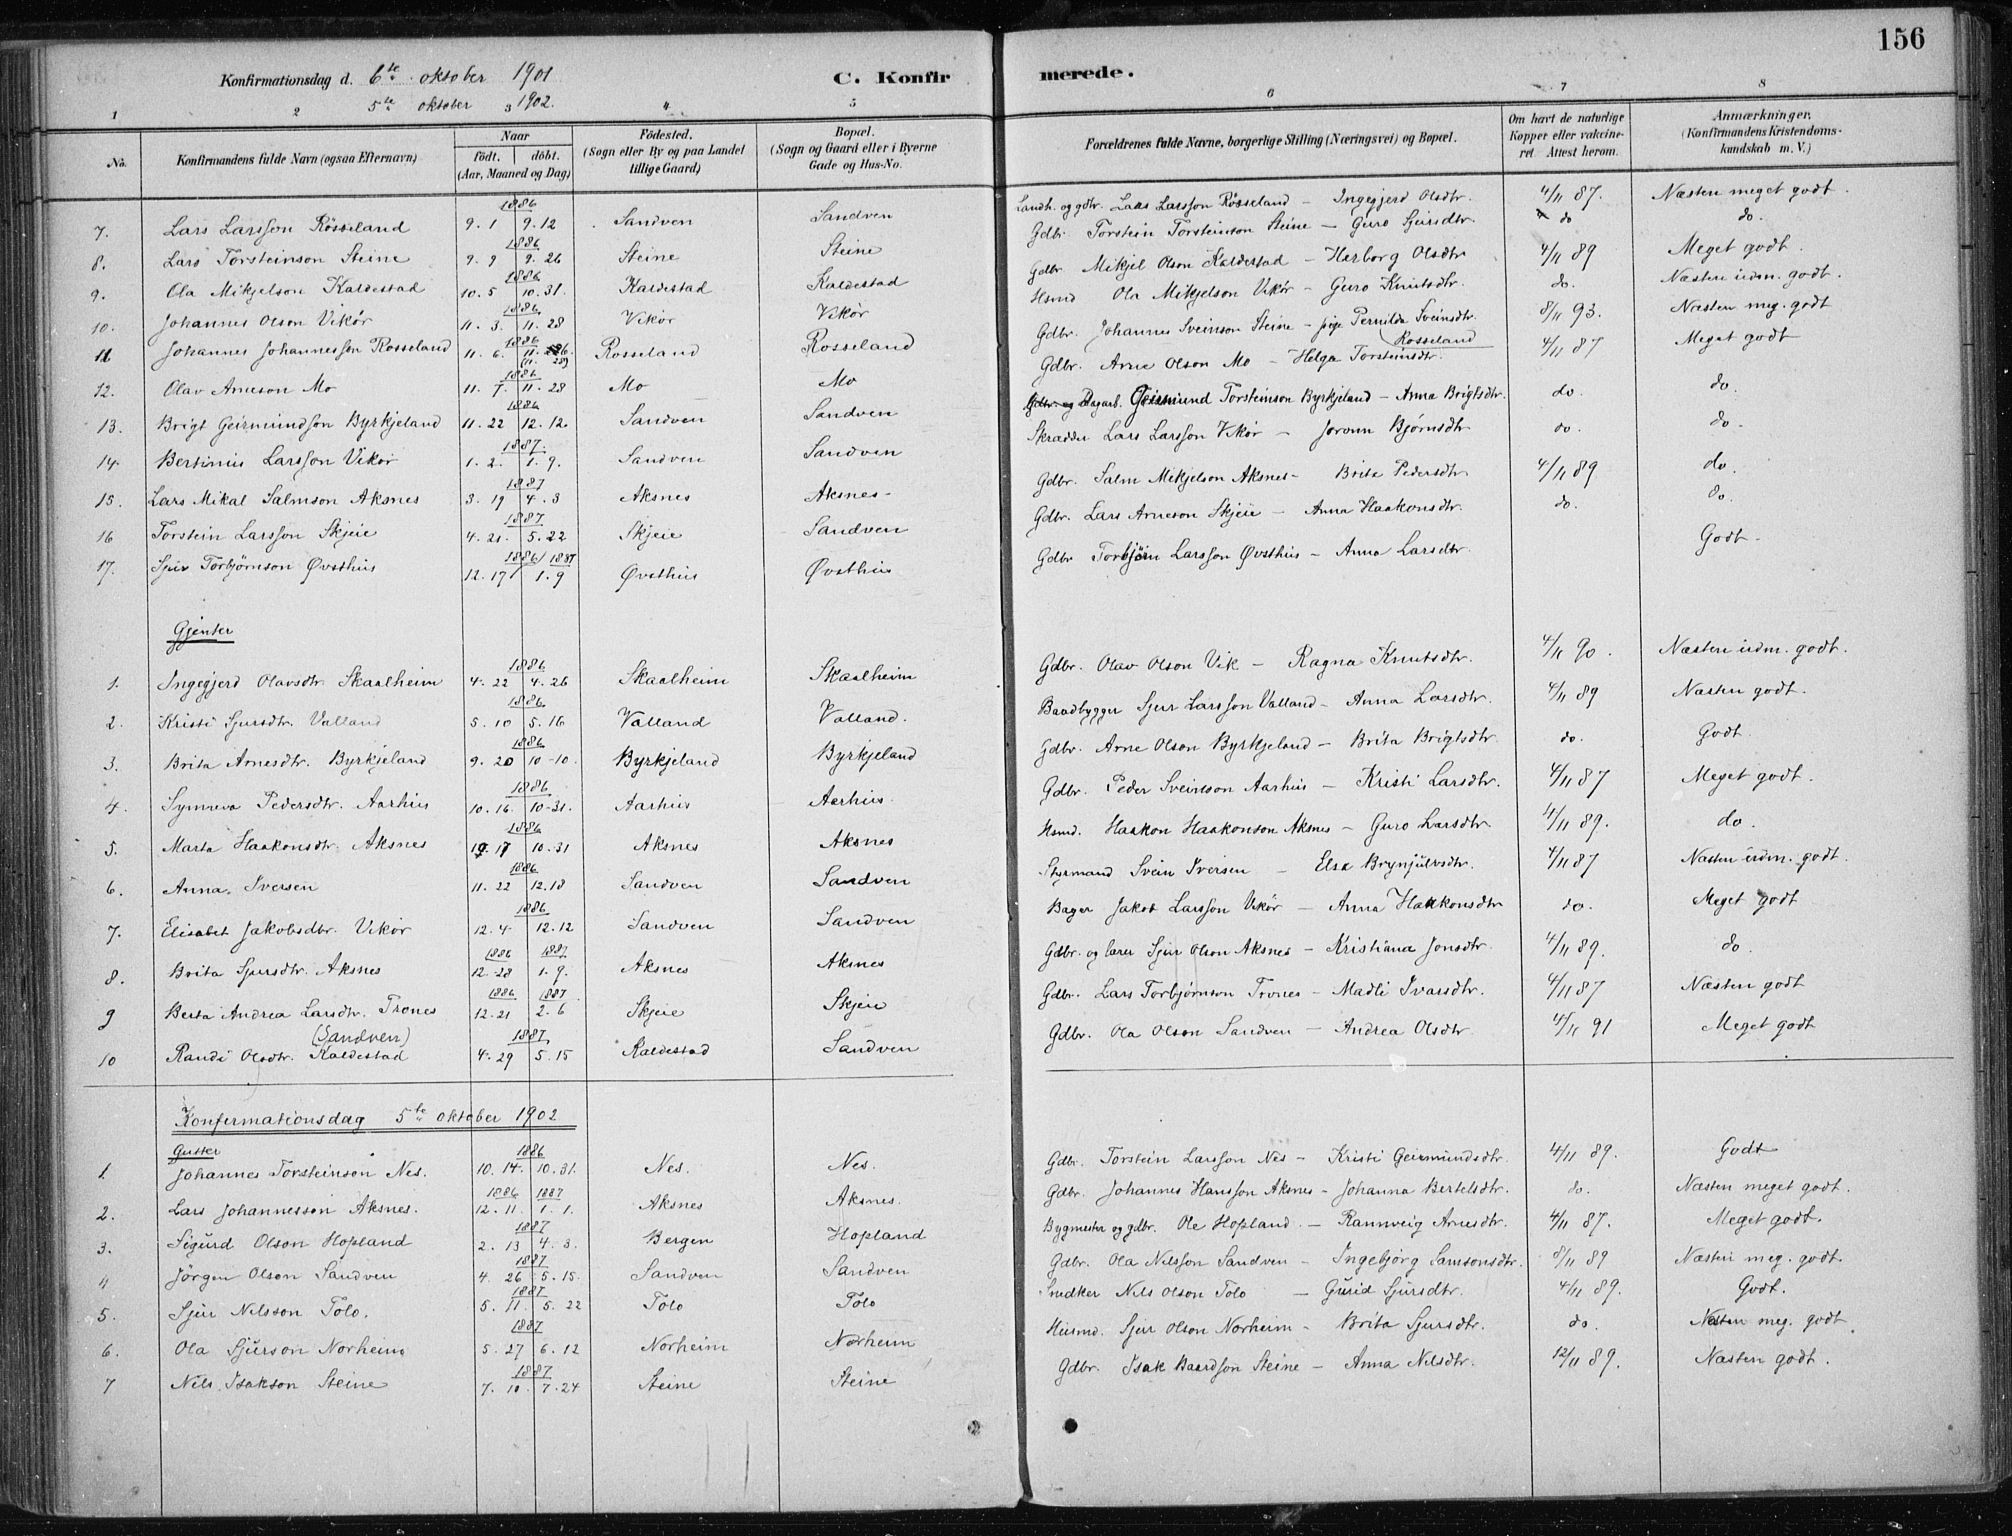 156
Konfirmationsdag d. 6te oktober 1901 C. Konfirmerede.
5te oktober 1902.
1 2 3 4 5 6 7 8
No. Konfirmandens fulde Navn (ogsaa Efternavn) Naar født, døbt. (Aar, Maaned og Dag) Fødested. (Sogn eller By og paa Landet tillige Gaard) Bopæl. (Sogn og Gaard eller i Byerne Gade og Hus-No. Forældrenes fulde Navne, borgerlige Stilling (Næringsvei) og Bopæl. Om havt de naturlige Kopper eller vakcineret. Attest herom. Anmærkninger. (Konfirmandens Kristendomskundskab m. V.)
7. Lars Larsson Røsseland 1886 9. 1 9. 12 Sandven Sandven Landh. og gdbr. Lars Larsson Røsseland - Ingegjerd Olsdtr. 4/11 87. Næsten meget godt.
8. Lars Torsteinson Steine 1886 9. 9 9. 26 Steine Steine Gdbr. Torstein Torsteinson Steine - Guro Sjursdtr. do do.
9. Ola Mikjelson Kaldestad 1886 10. 5 10. 31. Kaldestad Kaldestad Gdbr. Mikjel Olson Kaldestad - Herborg Olsdtr 4/11 89 Meget godt.
10. Johannes Olson Vikør 1886 11. 3. 11. 28 Vikør Vikør Hsmd Ola Mikjelson Vikør - Guro Knutsdtr. do. Næsten udm. godt.
11. Johannes Johannesson Rosseland 1886 11. 6. 11. 26. (11. 28) Rosseland Rosseland Gdbr. Johannes Sveinson Steine - pige Pernilda Sveinsdtr. Rosseland 8/11 93. Næsten meg. godt
12. Olav Arneson Mo 1886 11. 7. 11. 28 Mo Mo Gdbr. Arne Olson Mo - Helga Torsteinsdtr. 4/11 87 Meget godt
13. Brigt Geirmundson Byrkjeland 1886 11. 22 12. 12. Sandven Sandven Gdbr. og Dagarb. Geirmund Torsteinson Byrkjeland - Anna Brigtsdtr. do. do.
14. Bertinius Larsson Vikør 1887. 1. 2. 1. 9. Sandven Sandven Skrædder Lars Larsson Vikør - Jorunn Bjørnsdtr do. do.
15. Lars Mikal Salmson Aksnes 1887 3. 19 4. 3 Aksnes Aksnes Gdbr. Salm Mikjelson Aksnes - Brita Pedersdtr 4/11 89. do.
16 Torstein Larsson Skjeie 1887 4. 21. 5. 22 Skjeie Sandven Gdbr. Lars Arneson Skjeie - Anna Haakonsdtr. do. do.
17. Sjur Torbjørnson Øvsthus 1886/1887 12. 17 1. 9 Øvsthus Øvsthus Gdbr Torbjørn Larsson Øvsthus - Anna Larsdtr. Godt.
Gjenter
1. Ingegjerd Olavsdtr. Skaalheim 1886 4. 22 4. 26 Skaalheim Skaalheim Gdbr. Olav Olson Vik - Ragna Knutsdtr. 4/11 90. Næsten udm. godt.
2. Kristi Sjursdtr. Valland 1886 5. 10 5. 16 Valland Valland. Baadbygger Sjur Larsson Valland - Anna Larsdtr. 4/11 89 Næsten godt.
3. Brita Arnesdtr. Byrkjeland 1886 9. 20 10-10. Byrkjeland Byrkjeland Gdbr. Arne Olson Byrkjeland - Brita Brigtsdtr. do. Godt.
4. Synneva Pedersdtr. Aarhus 1886 10. 16. 10-31. Aarhus Aarhus Gdbr. Peder Sveinson Aarhus - Kristi Larsdtr. 4/11 87 Meget godt.
5. Marta Haakonsdtr. Aksnes 1886 10. 17 10. 31 Aksnes Aksnes Hsmd. Haakon Haakonson Aksnes - Guro Larsdtr. 4/11 89. do.
6. Anna Iversen 1886 11. 22 12. 18 Sandven Sandven Styrmand Svein Iversen - Elsa Brynjulvsdtr. 4/11 87 Næsten udm. godt.
7. Elisabet Jakobsdtr. Vikør 1886 12. 4. 12. 12 Sandven Sandven Bager Jakob Larsson Vikør - Anna Haakonsdtr do. Meget godt
8. Brita Sjursdtr. Aksnes 1886 1887 12. 28 1. 9. Aksnes Aksnes Gdbr. og lærer Sjur Olson Aksnes - Kristiana Jonsdtr. 4/11 89. do.
9 Berta Andrea Larsdtr. Trones 1886 1887 12. 21 2. 6 Skjeie Skjeie Gdbr. Lars Torbjørnson Trones - Madli Ivarsdtr. 4/11 87 Næsten godt
10 Randi Olsdtr. Kaldestad (Sandven) 1887 4. 29 5. 15 Kaldestad Sandven Gdbr. Ola Olson Sandven - Andrea Olsdtr 4/11 91 Meget godt
Konfermationsdag 5te oktober 1902
Gutter
1. Johannes Torsteinson Nes. 1886 10. 14. 10. 31. Nes. Nes. Gdbr. Torstein Larsson Nes - Kristi Geirmundsdtr. 4/11 89. Godt
2. Lars Johannesson Aksnes. 1886 1887 12. 11. 1. 1. Aksnes Aksnes. Gdbr. Johannes Hansson Aksnes - Johanna Bertelsdtr. do. Næsten meget godt.
3. Sigurd Olson Hopland 1887 2. 13 4. 3. Bergen Hopland Bygmester og gdbr. Ole Hopland. - Rannveig Arnesdtr. 4/11 87. Meget godt.
4 Jörgen Olson Sandven 1887 4. 26 5. 15. Sandven Sandven Gdbr. Ola Nilsson Sandven - Ingebjørg Samsonsdtr. 8/11 89 Næsten meg. godt.
5. Sjur Nilsson Tolo. 1887 5. 11. 5. 22 Tolo Tolo Snedker Nils Olson Tolo - Gurid Sjursdtr. 4/11 89. Godt.
6. Ola Sjurson Norheim 1887 5. 27 6. 12 Norheim Norheim Husmd. Sjur Olson Norheim - Brita Sjursdtr. do. Næsten meg. godt.
7 Nils Isakson Steine 1887 7. 10. 7. 24 Steine Steine Gdbr Isak Baardson Steine - Anna Nilsdtr. 12/11 89. Næsten godt.